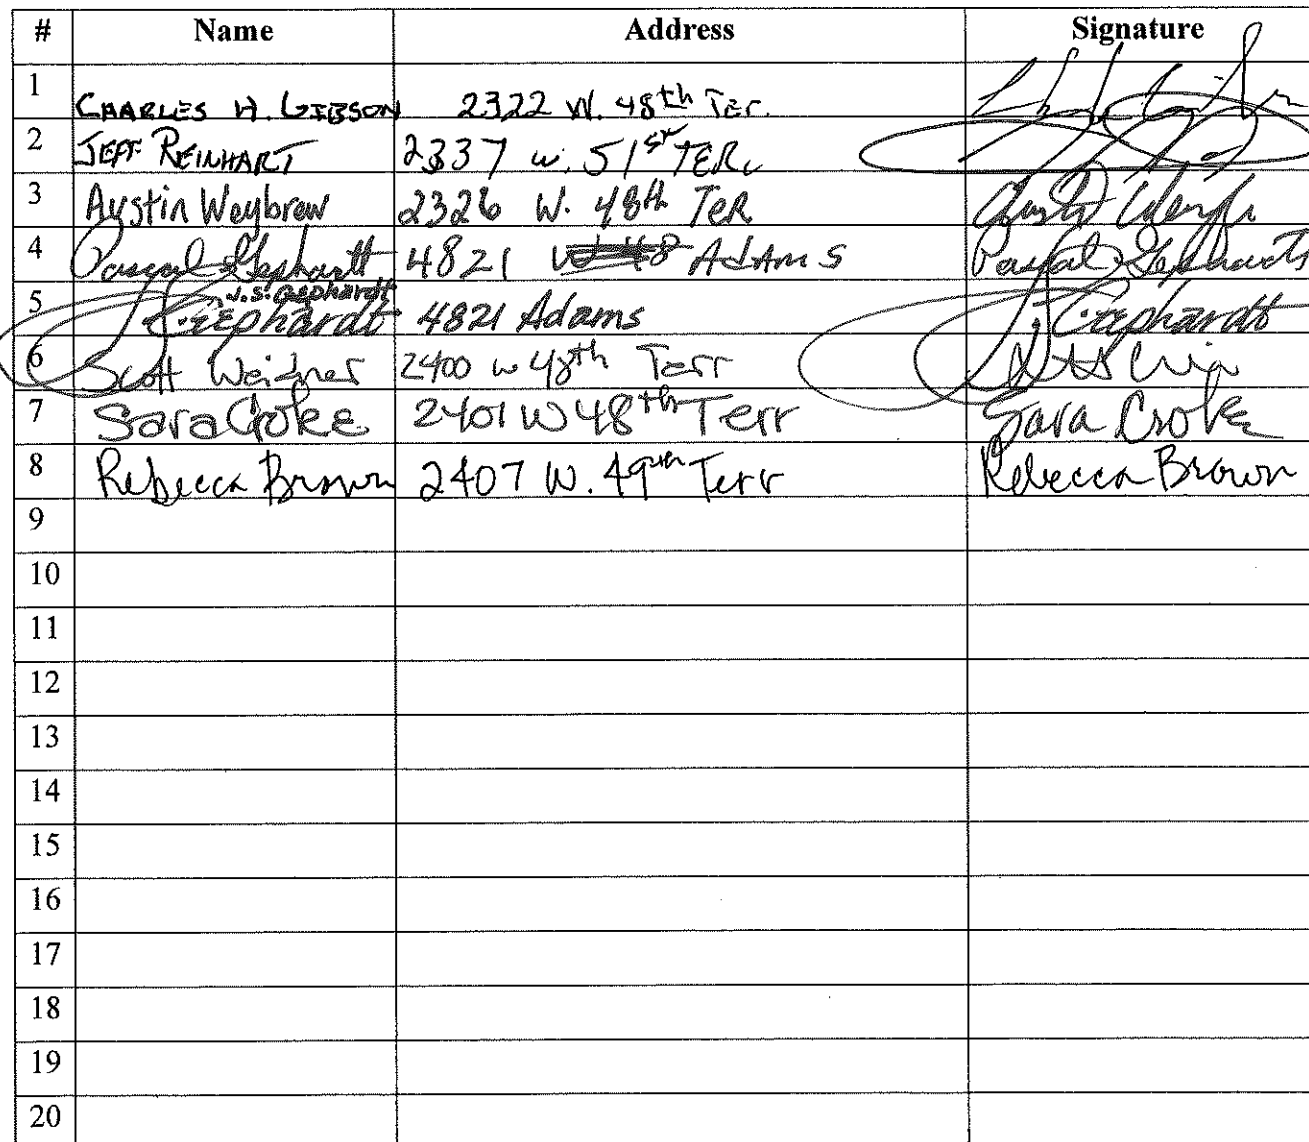 # Name Address Signature
1 CHARLES H. GIBSON 2322 W. 48th Ter.
2 JEFF REINHART 2337 W. 51st TER.
3 Austin Weybrew 2326 W. 48th Ter
4 Pascal Gephardt 4821 Adams Pascal Gephardt
J.S. Gephardt
5 Gephardt 4821 Adams J. Gephardt
6 Scott Weidner 2400 W 48th Terr
7 Sara Croke 2401 W 48th Terr Sara Croke
8 Rebecca Brown 2407 W. 49th Terr Rebecca Brown
9
10
11
12
13
14
15
16
17
18
19
20